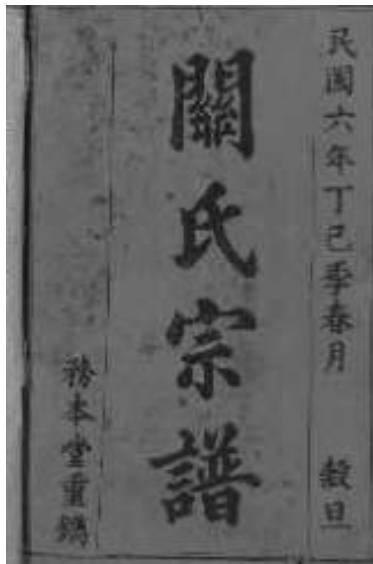 民國六年丁巳季春月 穀旦
關氏宗譜
務本堂重鐫